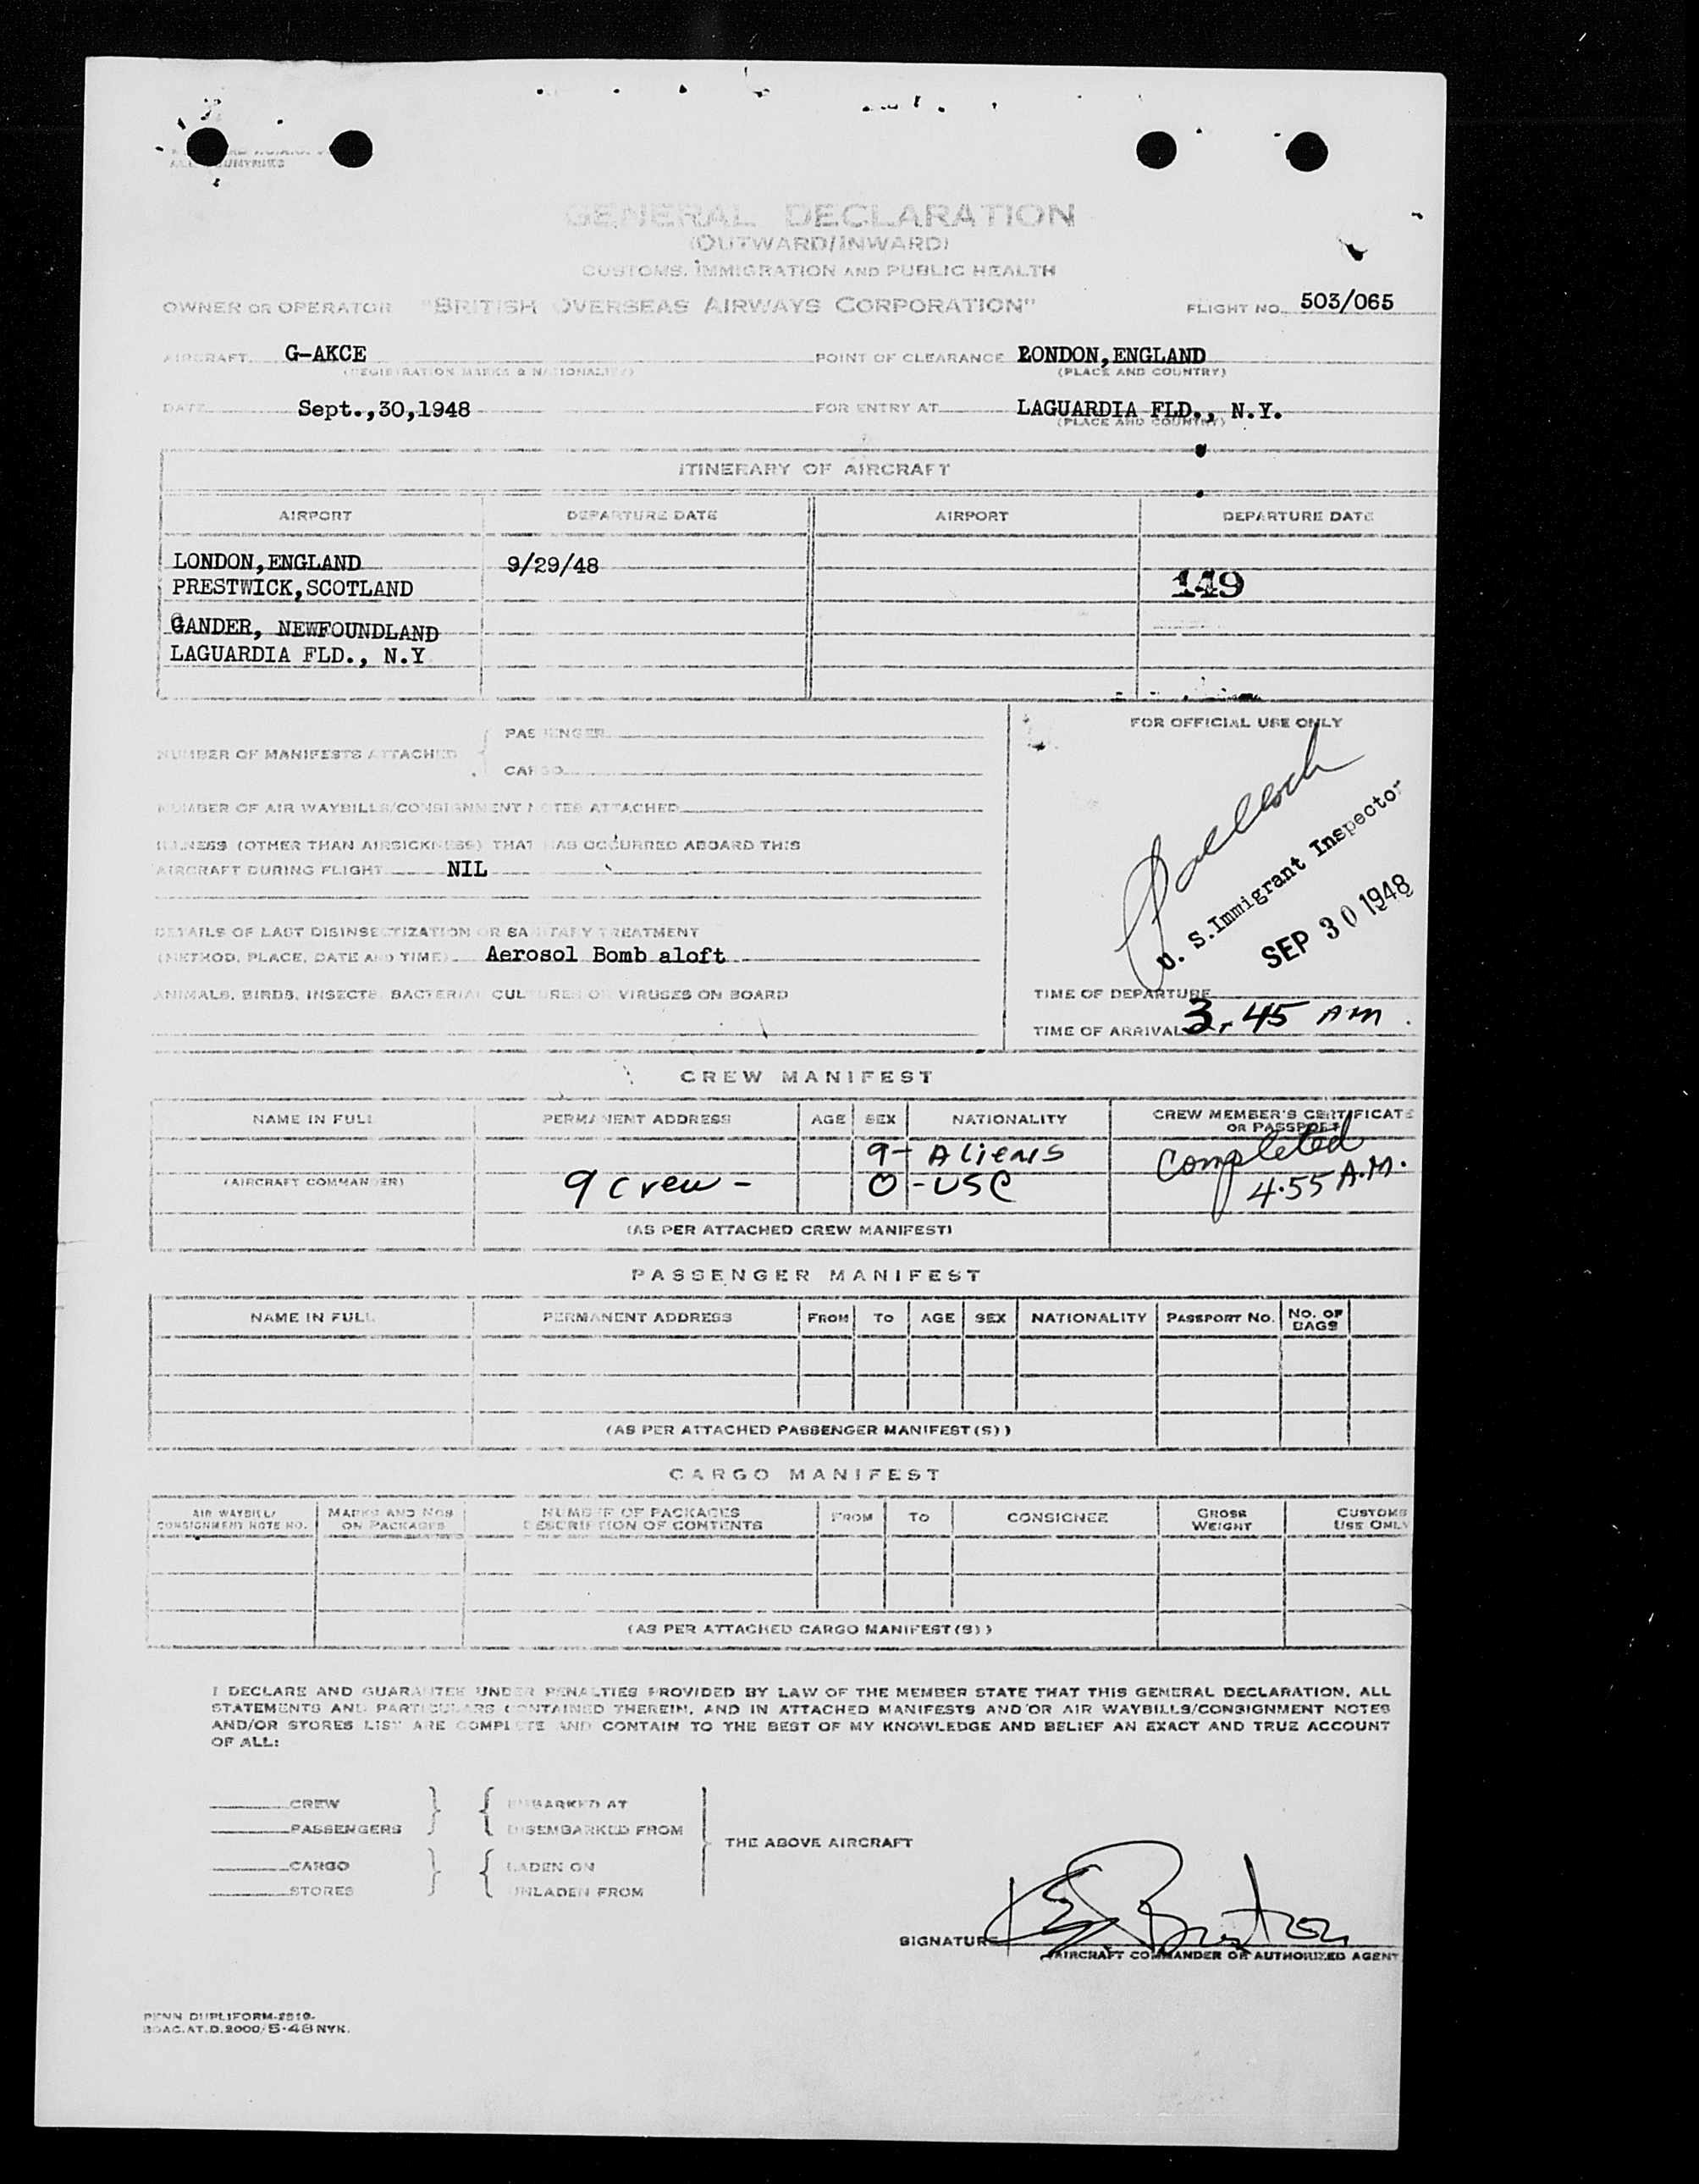 ALL COUNTRIES
GENERAL DECLARATION
(OUTWARD/INWARD)
CUSTOMS, IMMIGRATION AND PUBLIC HEALTH
OWNER OR OPERATOR "BRITISH OVERSEAS AIRWAYS CORPORATION" FLIGHT NO. 503/065
AIRCRAFT G-AKCE POINT OF CLEARANCE LONDON,ENGLAND
(REGISTRATION MARKS & NATIONALITY) (PLACE AND COUNTRY)
DATE Sept.,30,1948 FOR ENTRY AT LAGUARDIA FLD., N.Y.
(PLACE AND COUNTRY)
ITINERARY OF AIRCRAFT
AIRPORT DEPARTURE DATE AIRPORT DEPARTURE DATE
LONDON,ENGLAND 9/29/48
PRESTWICK,SCOTLAND 149
GANDER, NEWFOUNDLAND
LAGUARDIA FLD., N.Y
FOR OFFICIAL USE ONLY
NUMBER OF MANIFESTS ATTACHED { PASSENGER
CARGO
NUMBER OF AIR WAYBILLS/CONSIGNMENT NOTES ATTACHED
ILLNESS (OTHER THAN AIRSICKNESS) THAT HAS OCCURRED ABOARD THIS
AIRCRAFT DURING FLIGHT NIL
U. S. Immigrant Inspector
SEP 30 1948
DETAILS OF LAST DISINSECTIZATION OR SANITARY TREATMENT
(METHOD, PLACE, DATE AND TIME) Aerosol Bomb aloft
ANIMALS, BIRDS, INSECTS, BACTERIAL CULTURES OR VIRUSES ON BOARD
TIME OF DEPARTURE
TIME OF ARRIVAL 3.45 AM.
CREW MANIFEST
NAME IN FULL PERMANENT ADDRESS AGE SEX NATIONALITY CREW MEMBER'S CERTIFICATE
OR PASSPORT
9- Aliens Completed
(AIRCRAFT COMMANDER) 9 crew - 0-USC 4.55 A.M.
(AS PER ATTACHED CREW MANIFEST)
PASSENGER MANIFEST
NAME IN FULL PERMANENT ADDRESS FROM TO AGE SEX NATIONALITY PASSPORT NO. NO. OF BAGS
(AS PER ATTACHED PASSENGER MANIFEST(S))
CARGO MANIFEST
AIR WAYBILL/ MARKS AND NOS NUMBER OF PACKAGES FROM TO CONSIGNEE GROSS CUSTOMS
CONSIGNMENT NOTE NO. ON PACKAGES DESCRIPTION OF CONTENTS WEIGHT USE ONLY
(AS PER ATTACHED CARGO MANIFEST(S))
I DECLARE AND GUARANTEE UNDER PENALTIES PROVIDED BY LAW OF THE MEMBER STATE THAT THIS GENERAL DECLARATION, ALL
STATEMENTS AND PARTICULARS CONTAINED THEREIN, AND IN ATTACHED MANIFESTS AND/OR AIR WAYBILLS/CONSIGNMENT NOTES
AND/OR STORES LIST ARE COMPLETE AND CONTAIN TO THE BEST OF MY KNOWLEDGE AND BELIEF AN EXACT AND TRUE ACCOUNT
OF ALL:
CREW } { EMBARKED AT
PASSENGERS DISEMBARKED FROM
THE ABOVE AIRCRAFT
CARGO } { LADEN ON
STORES UNLADEN FROM
SIGNATURE
AIRCRAFT COMMANDER OR AUTHORIZED AGENT
PENN DUPLIFORM-2810-
BOAC.AT.D.2000/5-48 NYK.